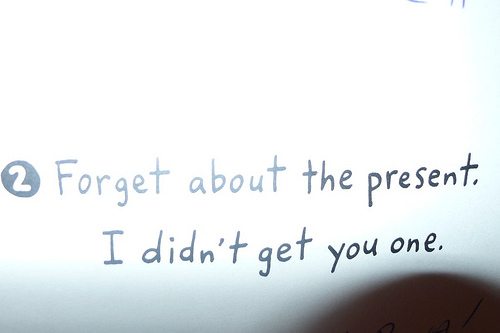 2 Forget about the present.
I didn't get you one.